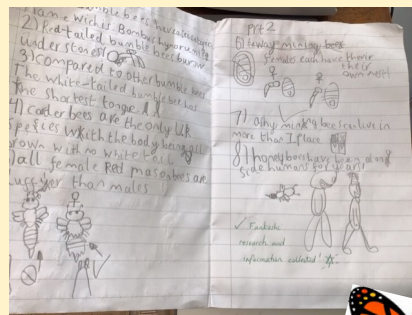 bumble bees have
name wich is Bombus hypnorum
2) Red-tailed bumble bees burrow
under stones!
3) compared to other bumble bees
The white-tailed bumble bee has
the shortest tongue
4) carder bees are the only UK
species with the body being all
brown with no white tail
5) all female Red mason bees are
fluffier than males
prt2
6) tawny mining bees
females each have there
their
own nest!
7) ashy mining bees can live in
more than 1 place
8) honey bees have been along
side humans for years!
✓ Fantastic
research and
information collected!